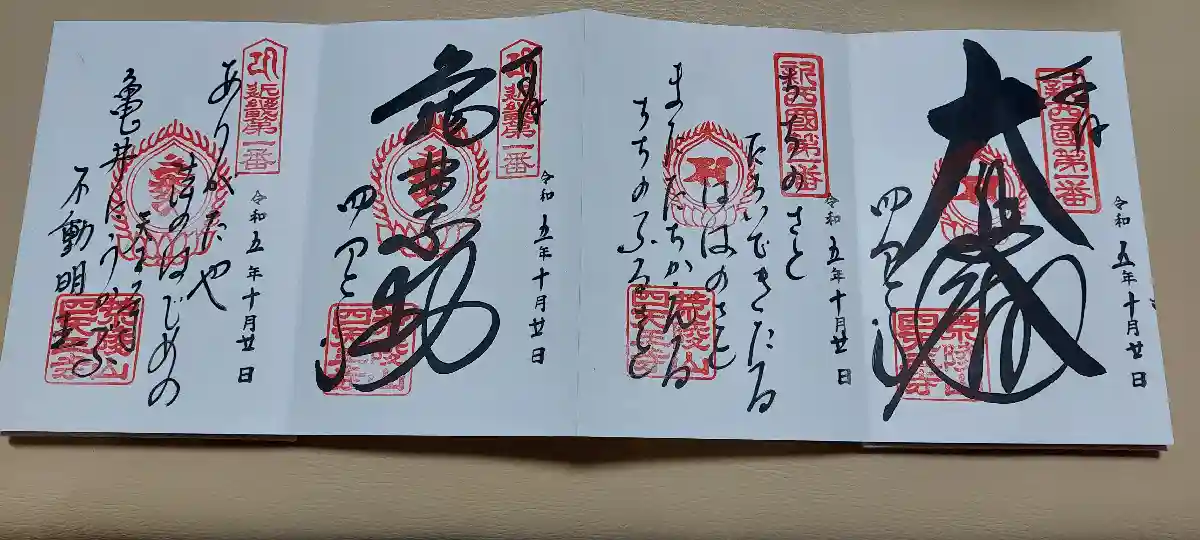 奉拝
新西國第一番
大悲殿
四天王寺
荒陵山
四天王寺
令和五年十月廿日
新西國第一番
ははのさと
またたちかへる
ちちのふるさと
荒陵山
四天王寺
令和五年十月廿日
奉拝
近畿第一番
亀井不動
四天王寺
荒陵山
四天王寺
令和五年十月廿日
近畿第一番
ありがたや
法のはじめの
天王寺
亀井にうかぶ
不動明王
荒陵山
四天王寺
令和五年十月廿日